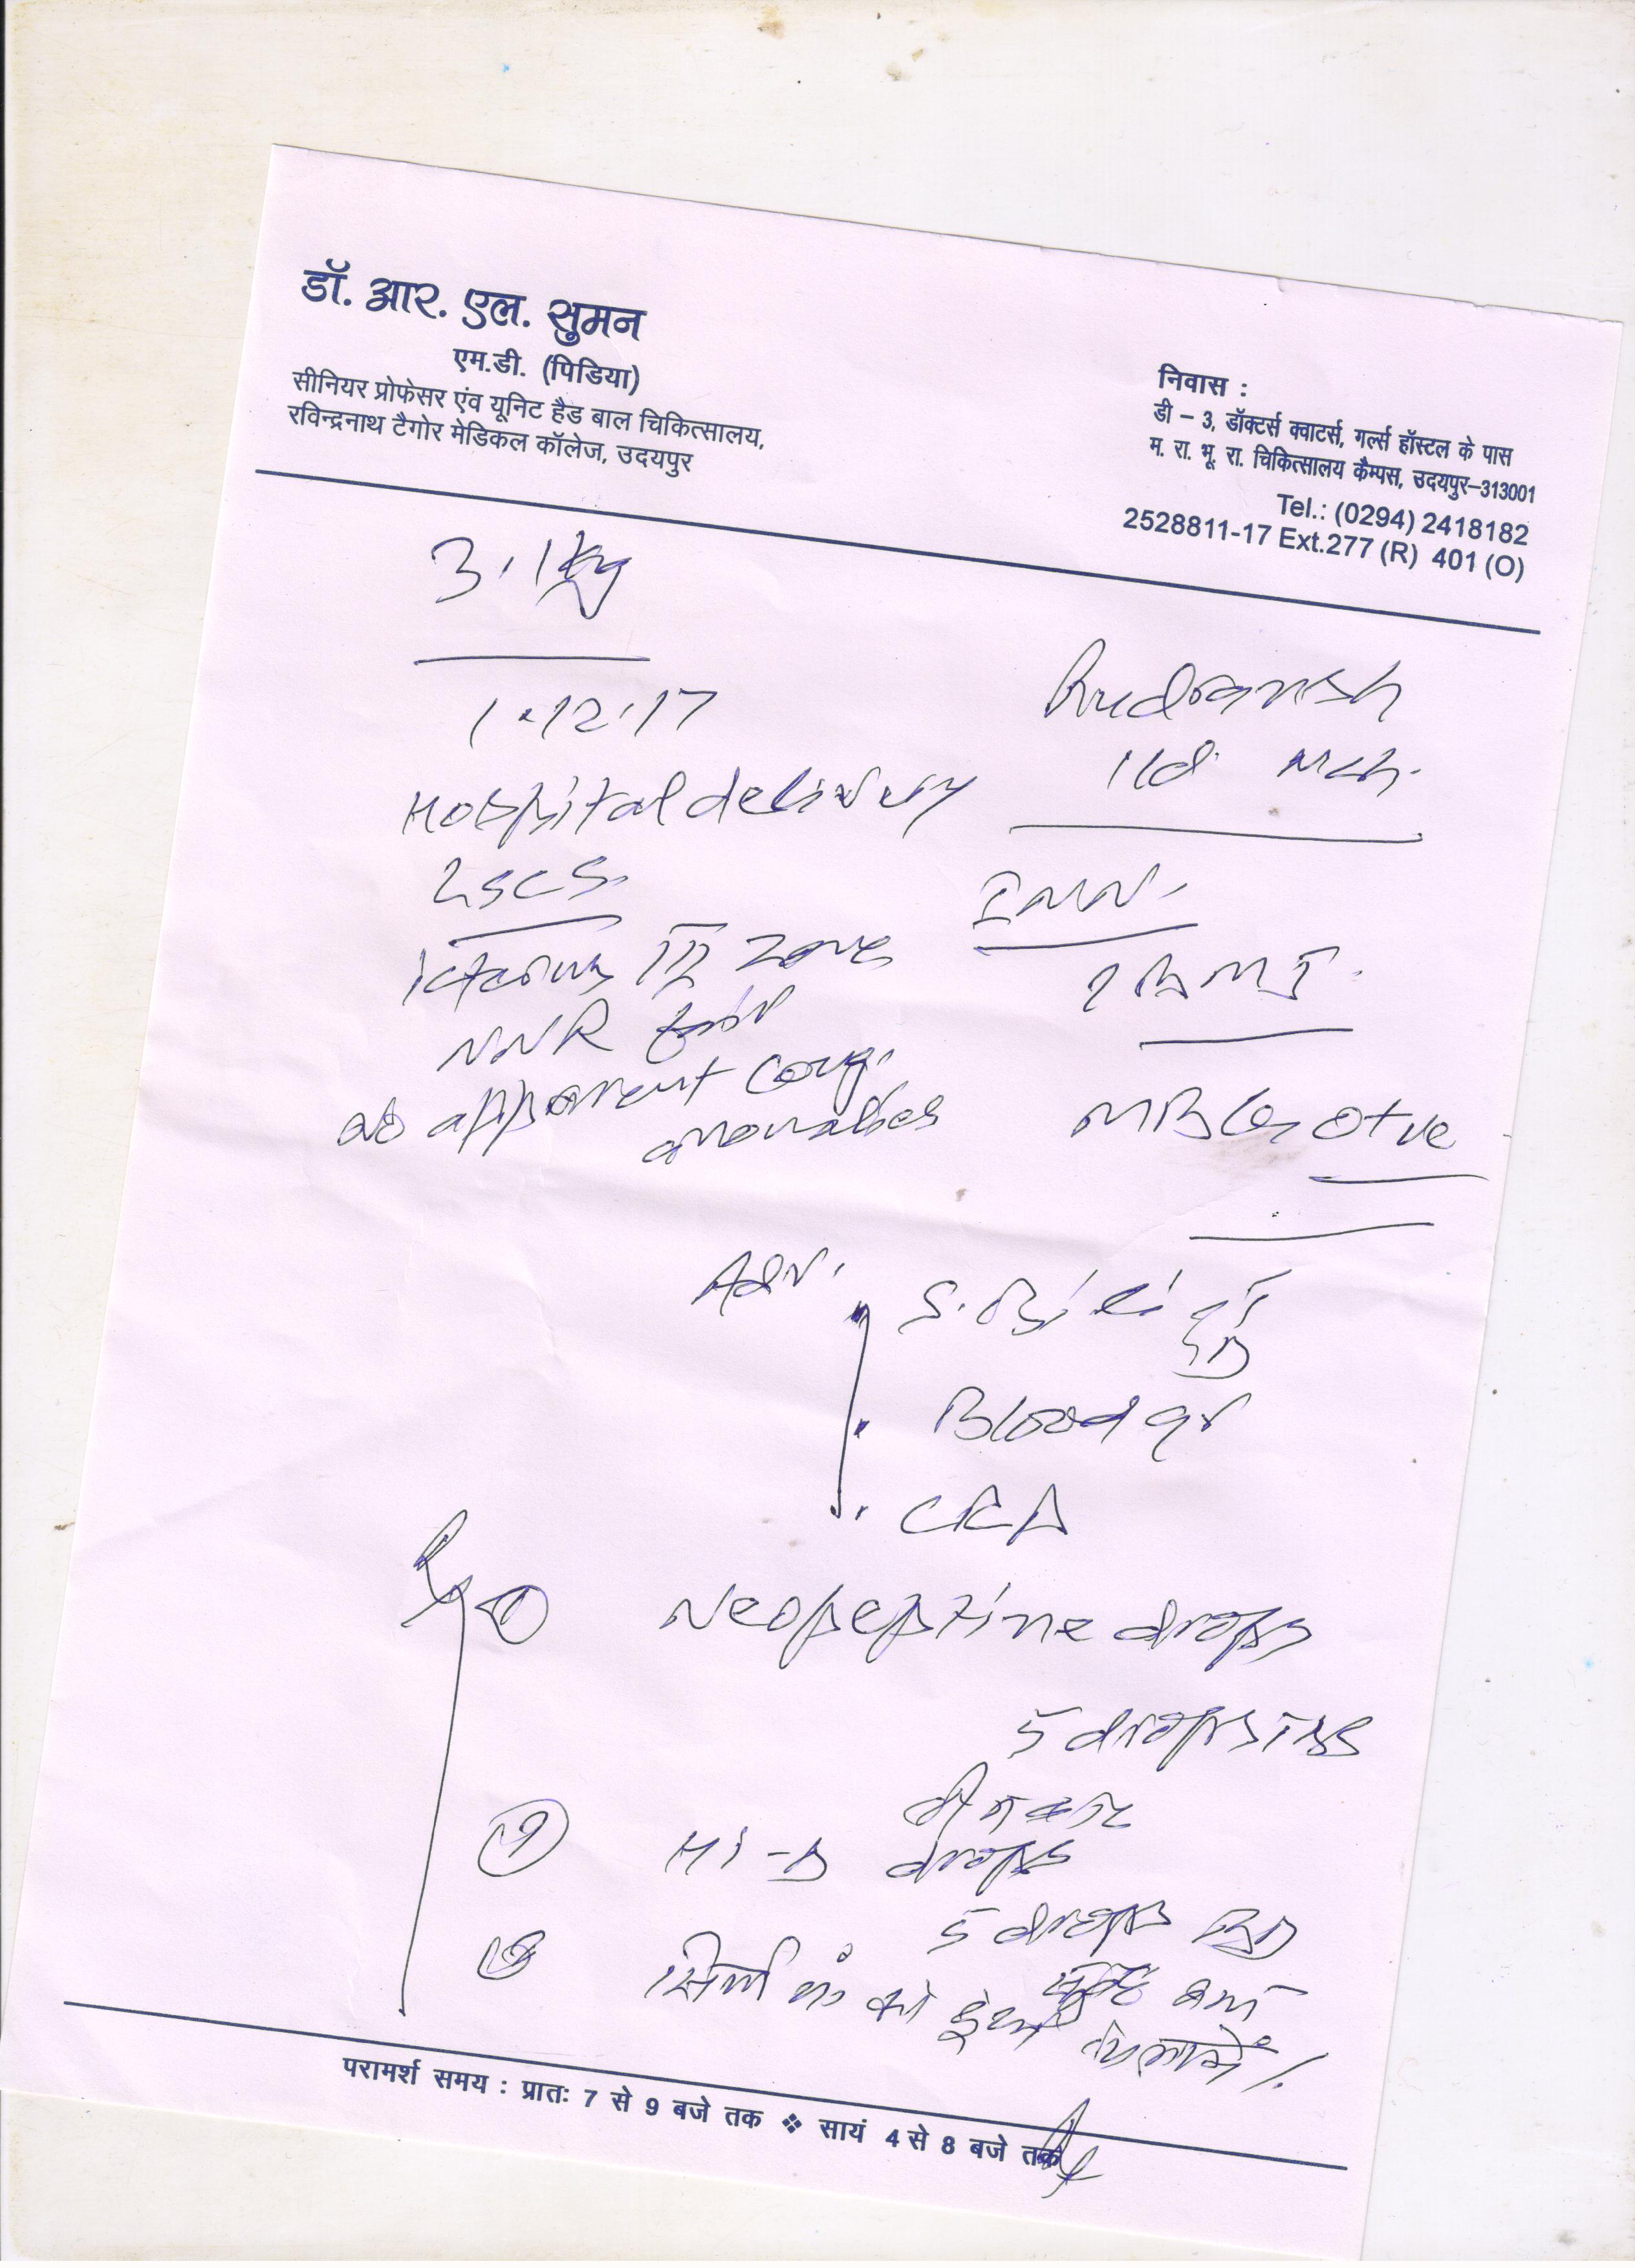 डॉ. आर. एल. सुमन
एम.डी. (पिडिया)
सीनियर प्रोफेसर एंव यूनिट हैड बाल चिकित्सालय,
रविन्द्रनाथ टैगोर मेडिकल कॉलेज, उदयपुर
निवास :
डी – 3, डॉक्टर्स क्वाटर्स, गर्ल्स हॉस्टल के पास
म. रा. भू. रा. चिकित्सालय कैम्पस, उदयपुर–313001
Tel.: (0294) 2418182
2528811-17 Ext.277 (R) 401 (O)
3.1kg
1.12.17
Hospital delivery
LSCS
Icterus III zone
NNR
no apparent cong.
anomalies
Rudransh
11d Mch.
MBG O+ve
Adv.
S. Bili T
D
Blood gr
① Neopeptine drops
5 drops TDS
② Hi-D drops
5 drops BD
③ सिर्फ माँ का दूध
पिलायें।
परामर्श समय : प्रातः 7 से 9 बजे तक ❖ सायं 4 से 8 बजे तक